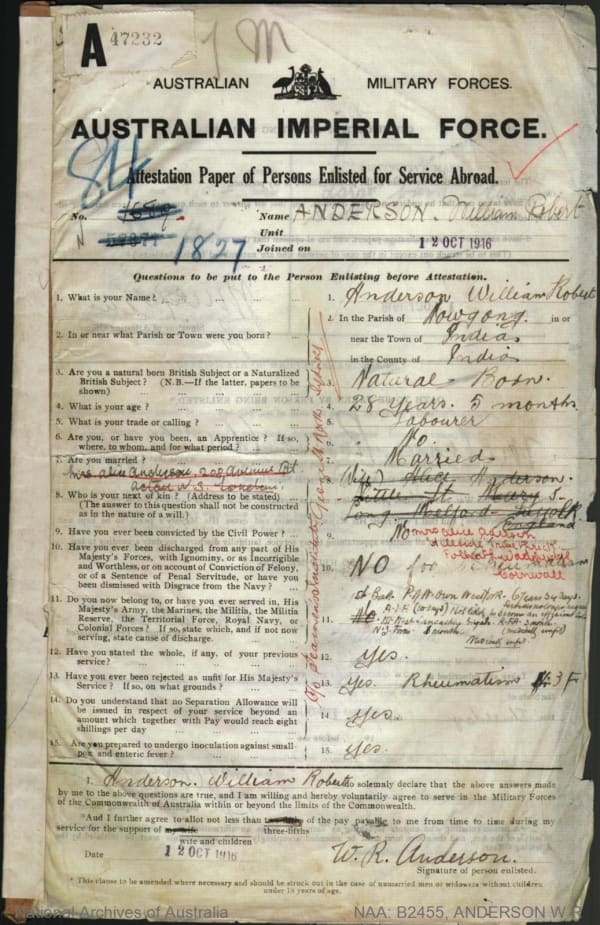 A 47232
AUSTRALIAN MILITARY FORCES.
AUSTRALIAN IMPERIAL FORCE.
84
Attestation Paper of Persons Enlisted for Service Abroad.
No. Name ANDERSON. William Robert
Unit
N 1827 Joined on 12 OCT 1916
Questions to be put to the Person Enlisting before Attestation.
1. What is your Name? ... 1. Anderson William Robert
2. In or near what Parish or Town were you born? ... 2. In the Parish of Nowgong in or
near the Town of India
in the County of India
3. Are you a natural born British Subject or a Naturalized
British Subject? (N.B.—If the latter, papers to be
shown) ... 3. Natural Born.
4. What is your age? ... 4. 28 Years. 5 months
5. What is your trade or calling? ... 5. Labourer
6. Are you, or have you been, an Apprentice? If so,
where, to whom, and for what period? 6. No.
7. Are you married? ... 7. Married
Mrs Alice Anderson
8. Who is your next of kin? (Address to be stated) 8. (Wife) Alice Anderson.
(The answer to this question shall not be construed
as in the nature of a will.)
Long Melford Suffolk
England
9. Have you ever been convicted by the Civil Power? ... 9. No
Mrs Alice Anderson
Cornwall
10. Have you ever been discharged from any part of His
Majesty's Forces, with Ignominy, or as Incorrigible
and Worthless, or on account of Conviction of Felony,
or of a Sentence of Penal Servitude, or have you
been dismissed with Disgrace from the Navy? ... 10. NO
11. Do you now belong to, or have you ever served in, His
Majesty's Army, the Marines, the Militia, the Militia
Reserve, the Territorial Force, Royal Navy, or
Colonial Forces? If so, state which, and if not now
serving, state cause of discharge. 11.
12. Have you stated the whole, if any, of your previous
service? 12. yes.
13. Have you ever been rejected as unfit for His Majesty's
Service? If so, on what grounds? 13. yes. Rheumatism
14. Do you understand that no Separation Allowance will
be issued in respect of your service beyond an
amount which together with Pay would reach eight
shillings per day 14. yes.
15. Are you prepared to undergo inoculation against small-
pox and enteric fever? 15. yes.
I, Anderson. William Robert solemnly declare that the above answers made
by me to the above questions are true, and I am willing and hereby voluntarily agree to serve in the Military Forces
of the Commonwealth of Australia within or beyond the limits of the Commonwealth.
*And I further agree to allot not less than of the pay payable to me from time to time during my
service for the support of my wife three-fifths
wife and children
Date 12 OCT 1916 W. R. Anderson.
Signature of person enlisted.
* This clause to be amended where necessary and should be struck out in the case of unmarried men or widowers without children
under 18 years of age.
National Archives of Australia NAA: B2455, ANDERSON W R